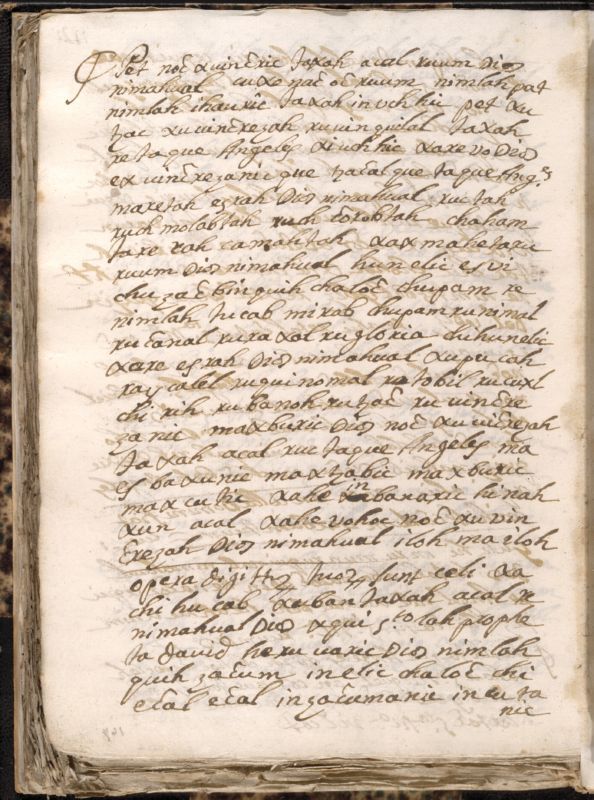 Pet noć xuinćric taxah acal ruum Dios
nimahual cuxe nać oć ruum nimlah pat
nimlah ihauric taxah in uchhic pet xu
tzac xuuinćrezah ru uinquilal taxah
retaque Angeles xiuchhic xare vo Dios
ex uinćrezanic que tzaćal que taque Angs
maxetah ezrah Dios nimahual ruc tah
ruch molabtah ruch ćorobtah chaham
taxe rah camahtah xax mahetagu
ruum Dios nimahual hunelic es vi
chu zać bin quih chaloć chupam re
nimlah tucab mirab chupam ru nimal
ru ćanal ru raxal ru gloria chi hunelic
xare es rah Dios nimahual xupucah
ray calel ru qui nomal ru tobil ru cuxl
chi rih ru banoh ru tzać ru uinćre
zanic maxburic Dios noć xu uinćrezah
taxah acal ruc taque Angeles ma
es baxunic maxtzabic maxburic
maxcutic xahe in banaric hi nah
xun acal xahe vohoc noć xu uin
ćrezah Dios nimahual iloh ma iloh
opera digittos tuos sunt celi xa
chi hu cab xuban taxah acal re
nimahual Dios xqui sto lah prophe
ta David heru varic Dios nimlah
quih zaćum inelic chaloć chi
ećal ećal in zaćumaric in cuta
nic
148